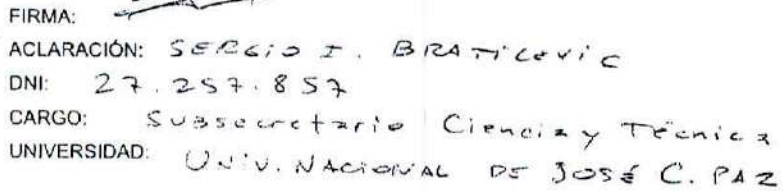 FIRMA:
ACLARACIÓN: SERGIO I. BRATICEVIC
DNI: 27.257.857
CARGO: Subsecretario Ciencia y Técnica
UNIVERSIDAD: UNIV. NACIONAL DE JOSÉ C. PAZ